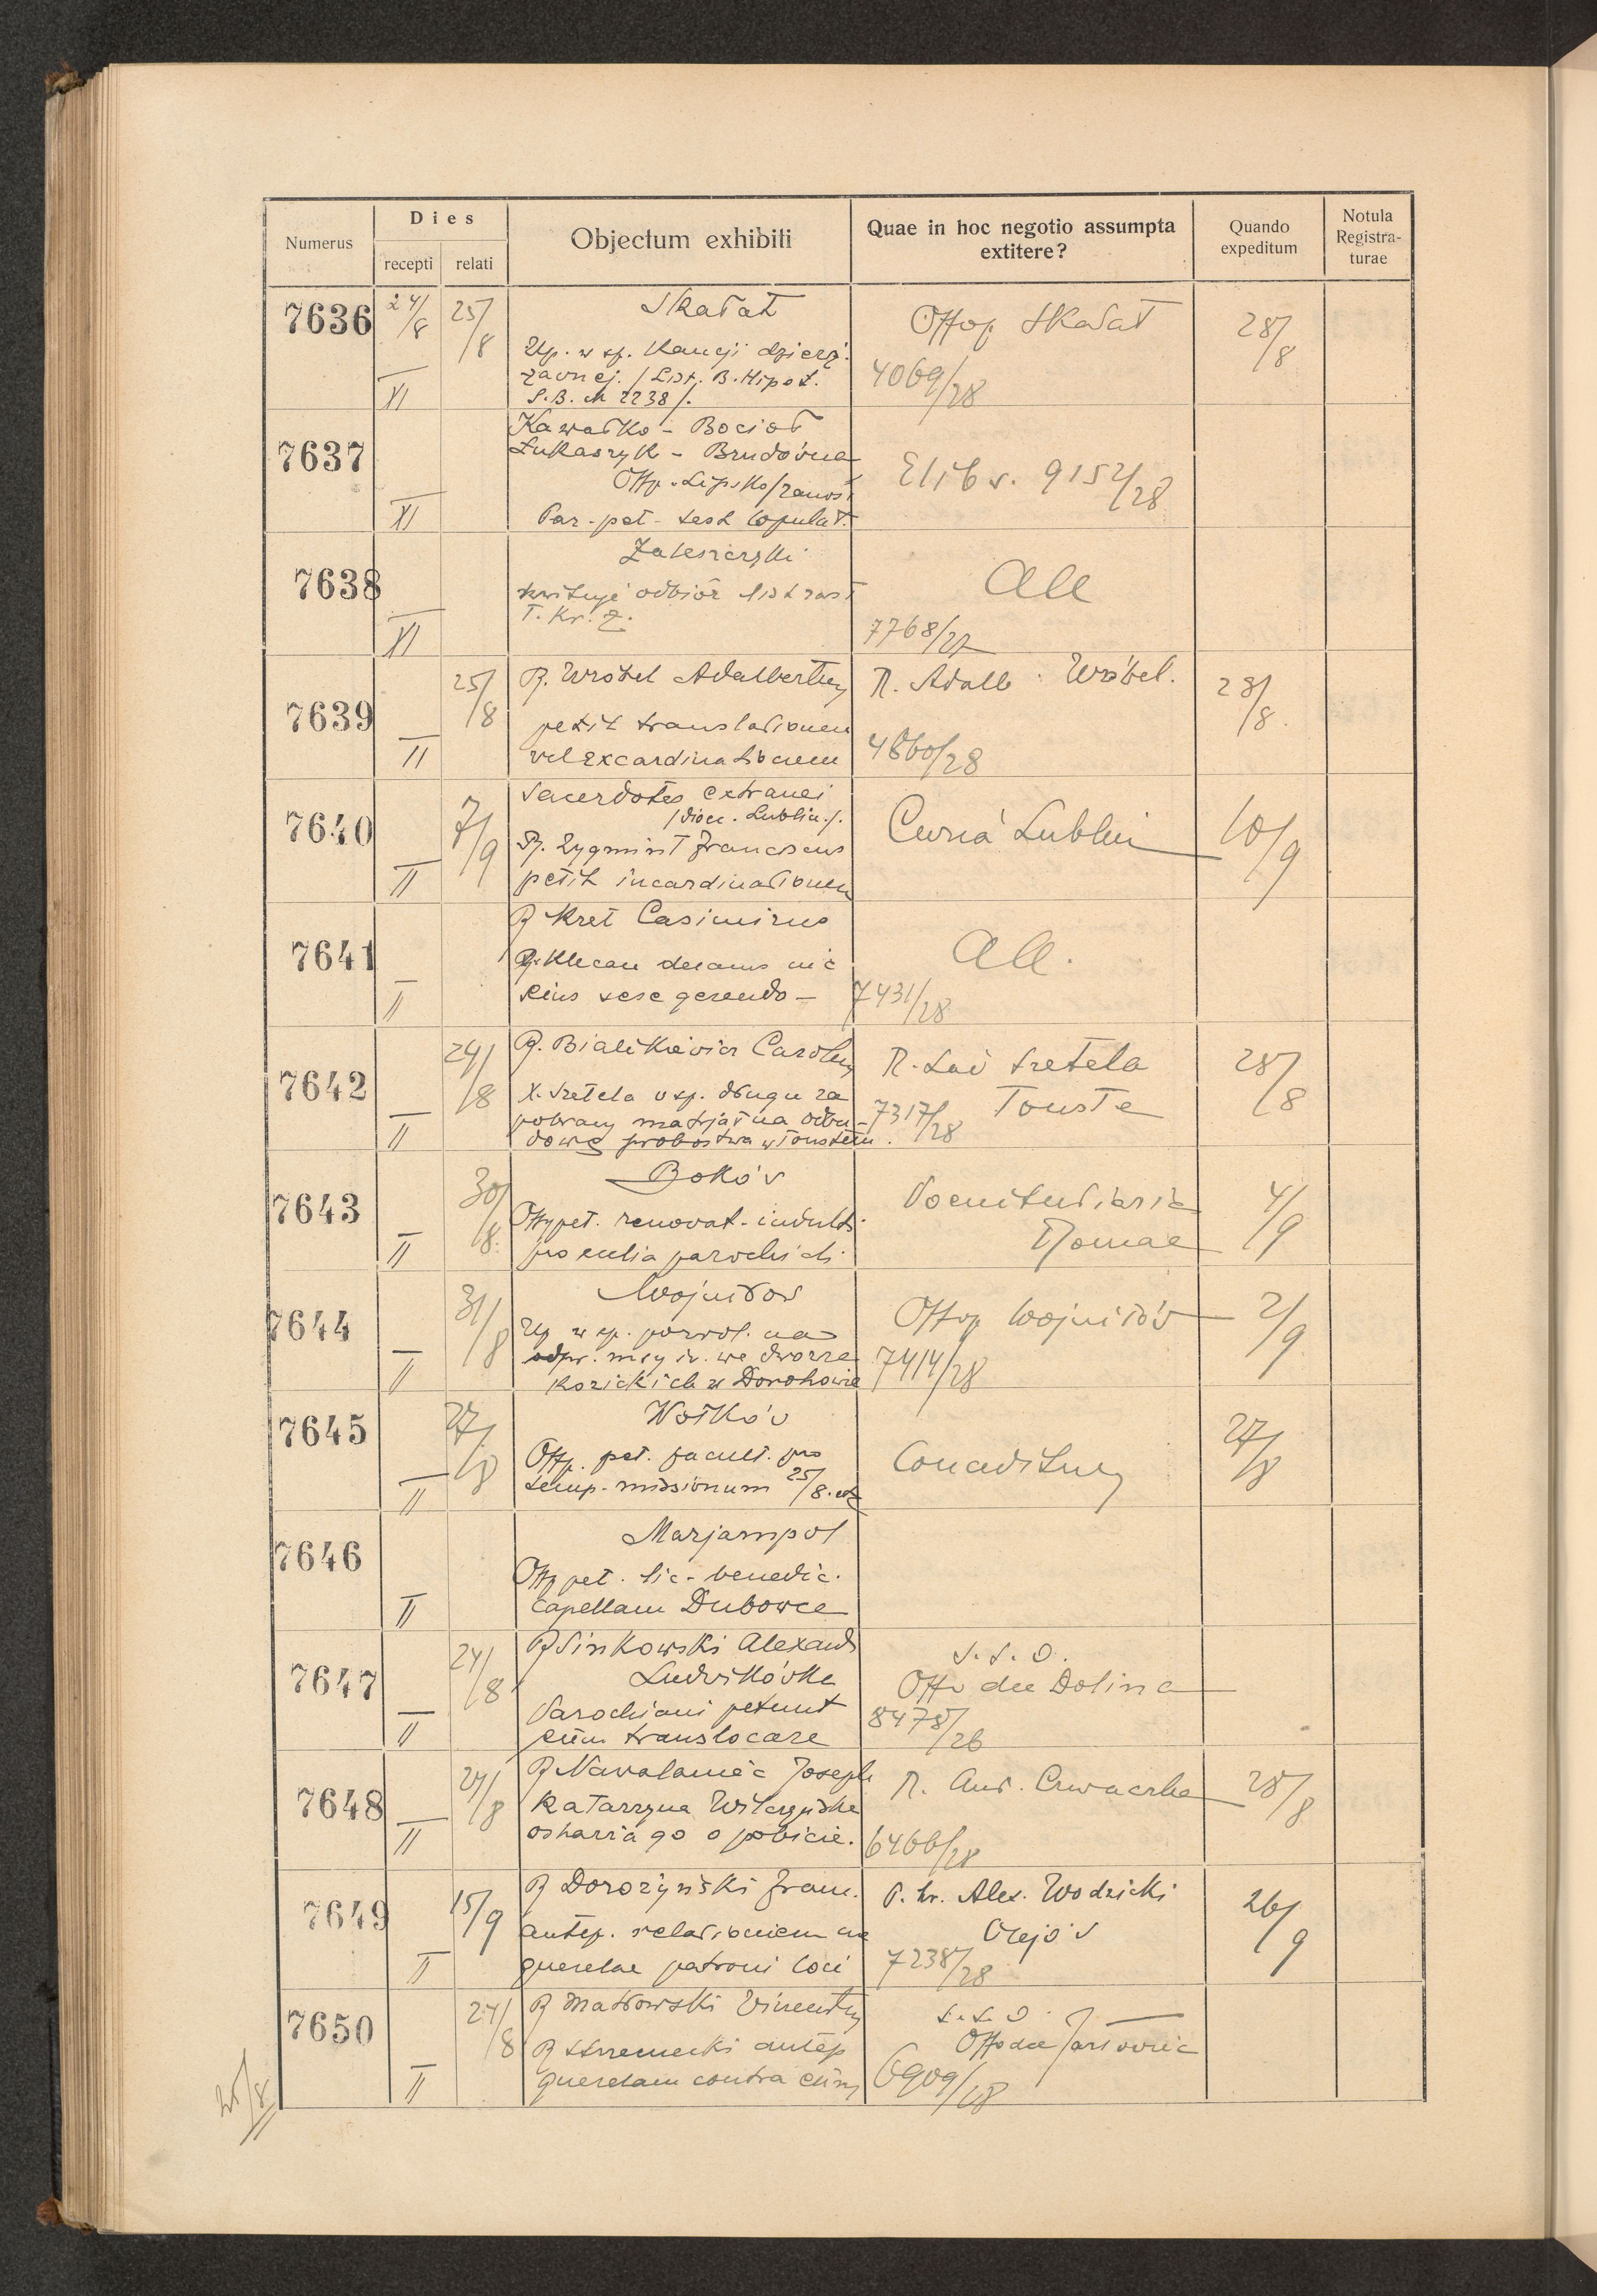 Numerus
Dies
recepti relati
Objectum exhibiti
Quae in hoc negotio assumpta
extitere?
Quando
expeditum
Notula
Registra-
turae
7636 24/8 25/8 Skałat Offop Skałat 28/8
Up. w sp. Kaucji dzierż.
żawnej. / List. B. Hipot. 4069/28
XI S.B. 2238 /.
7637 Kawałko - Bocioł
Łukaszyk - Brudówna
Offp. Lipsko / Zamość 9152/28
XI Par. pet. test copulat.
7638 Zaleszczyki All
kwituje odbiór
T. Kr. Z.
XI 7768/27
7639 25/8 R. Wróbel Adalbertus R. Adalb. Wróbel. 28/8
petit translationem
II vel excardinationem 4860/28
7640 7/9 Sacerdotes extranei Curia Lublin 10/9
/dioec. Lublin./.
R. Zygmunt Franciscus
II petit incardinationem
7641 R Kret Casimirus All.
R. Klecan
II sese gerendo - 7431/28
7642 24/8 R. Bialikiewicz Carolus R. Lad Szetela 28/8
X. Szetela w sp. długu za Touste
pobrany materjał na odbu- 7317/28
II dowę probostwa w Toustem.
7643 30/8 Boków Poenitentiaria 4/9
Offp pet. renovat. indulti Romae
II parochiali.
7644 31/8 Wojniłów Offop Wojniłów 2/9
Up w sp. pozwol. na
odpr. mszy św. we dworze 7414/28
II Kozickich w Dorohowie
7645 27/8 Wołków 27/8
Offp. pet. facult. pro Conceditur
II temp. missionum 25/8.
7646 Marjampol
Offp pet. lic. benedic.
II Capellam Dubowce
7647 24/8 R Sinkowski Alexand S. S. O.
Ludwikówka Offo dec Dolina
Parochiani petunt 8478/26
II eum translocare
7648 24/8 R Nawalaniec Joseph R. And. 28/8
Katarzyna Wilczyńska
II oskarża go o pobicie. 6466/28
7649 15/9 R Dorożyński Franc. P. hr. Alex. Wodzicki 26/9
antep. relationem ad Olejów
II querelae patroni loci 7238/28
7650 24/8 R Matkowski Vincentius S. S. O.
R antep Offo dec
II querelam contra eum 6909/28
25/8